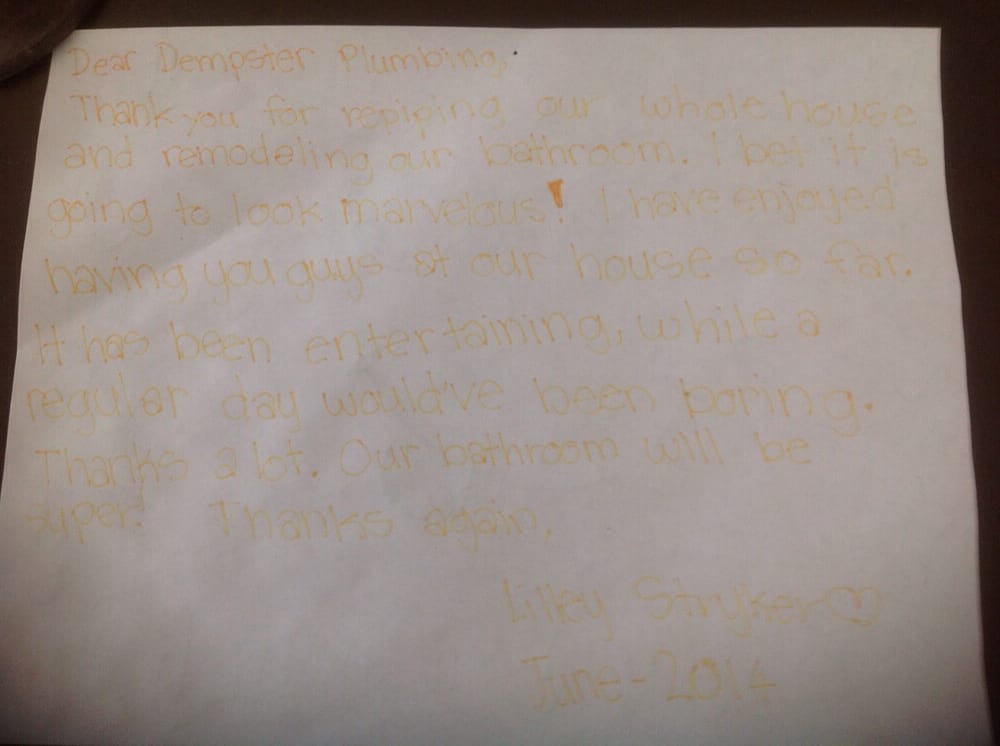 Dear Dempster Plumbing,
Thank you for repiping our whole house
and remodeling our bathroom. I bet it is
going to look marvelous! I have enjoyed
having you guys at our house so far.
It has been entertaining, while a
regular day would've been boring.
Thanks a lot. Our bathroom will be
super! Thanks again,
Lilley Stryker♡
June-2014